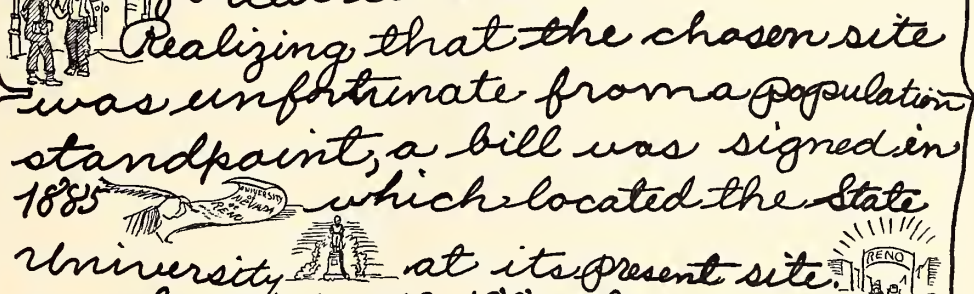 Realizing that the chosen site
was unfortunate from a population
standpoint, a bill was signed in
1885 UNIVERSITY OF NEVADA RENO which located the State
University at its present site. RENO